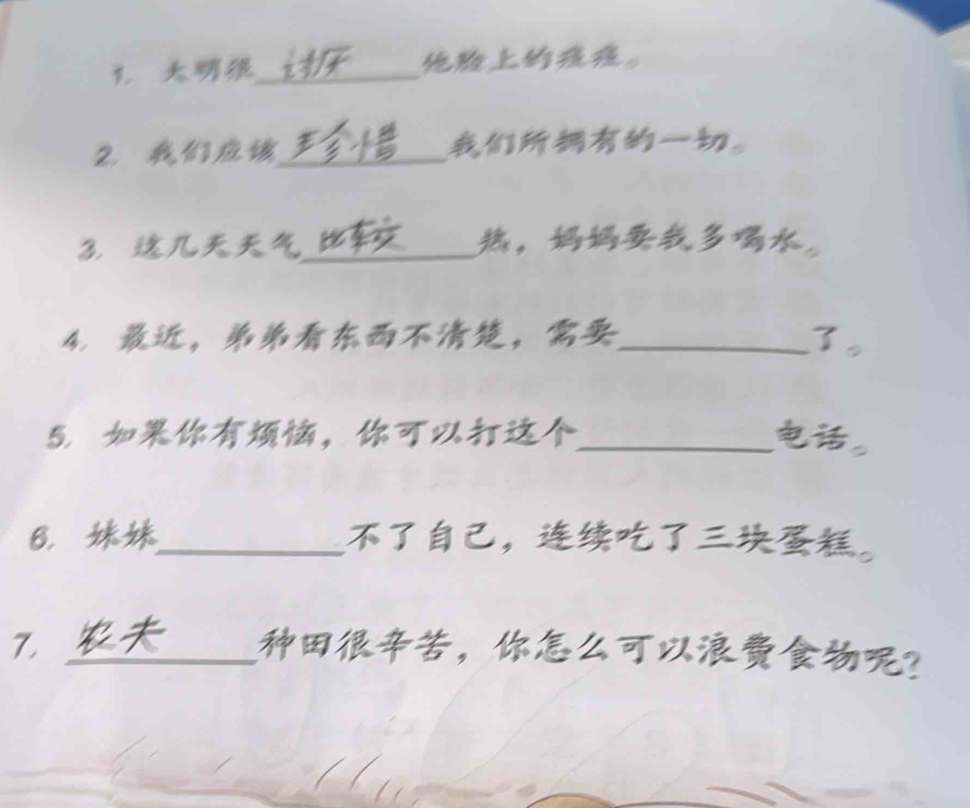 1. 大明很 讨厌 他脸上的痘痘。
2. 我们应该 珍惜 我们所拥有的一切。
3. 这几天天气 比较 热，妈妈要我多喝水。
4. 最近，弟弟看东西不清楚，需要__________了。
5. 如果你有烦恼，你可以打这个__________电话。
6. 妹妹__________不了自己，连续吃了三块蛋糕。
7. 农夫 种田很辛苦，你怎么可以浪费食物呢？